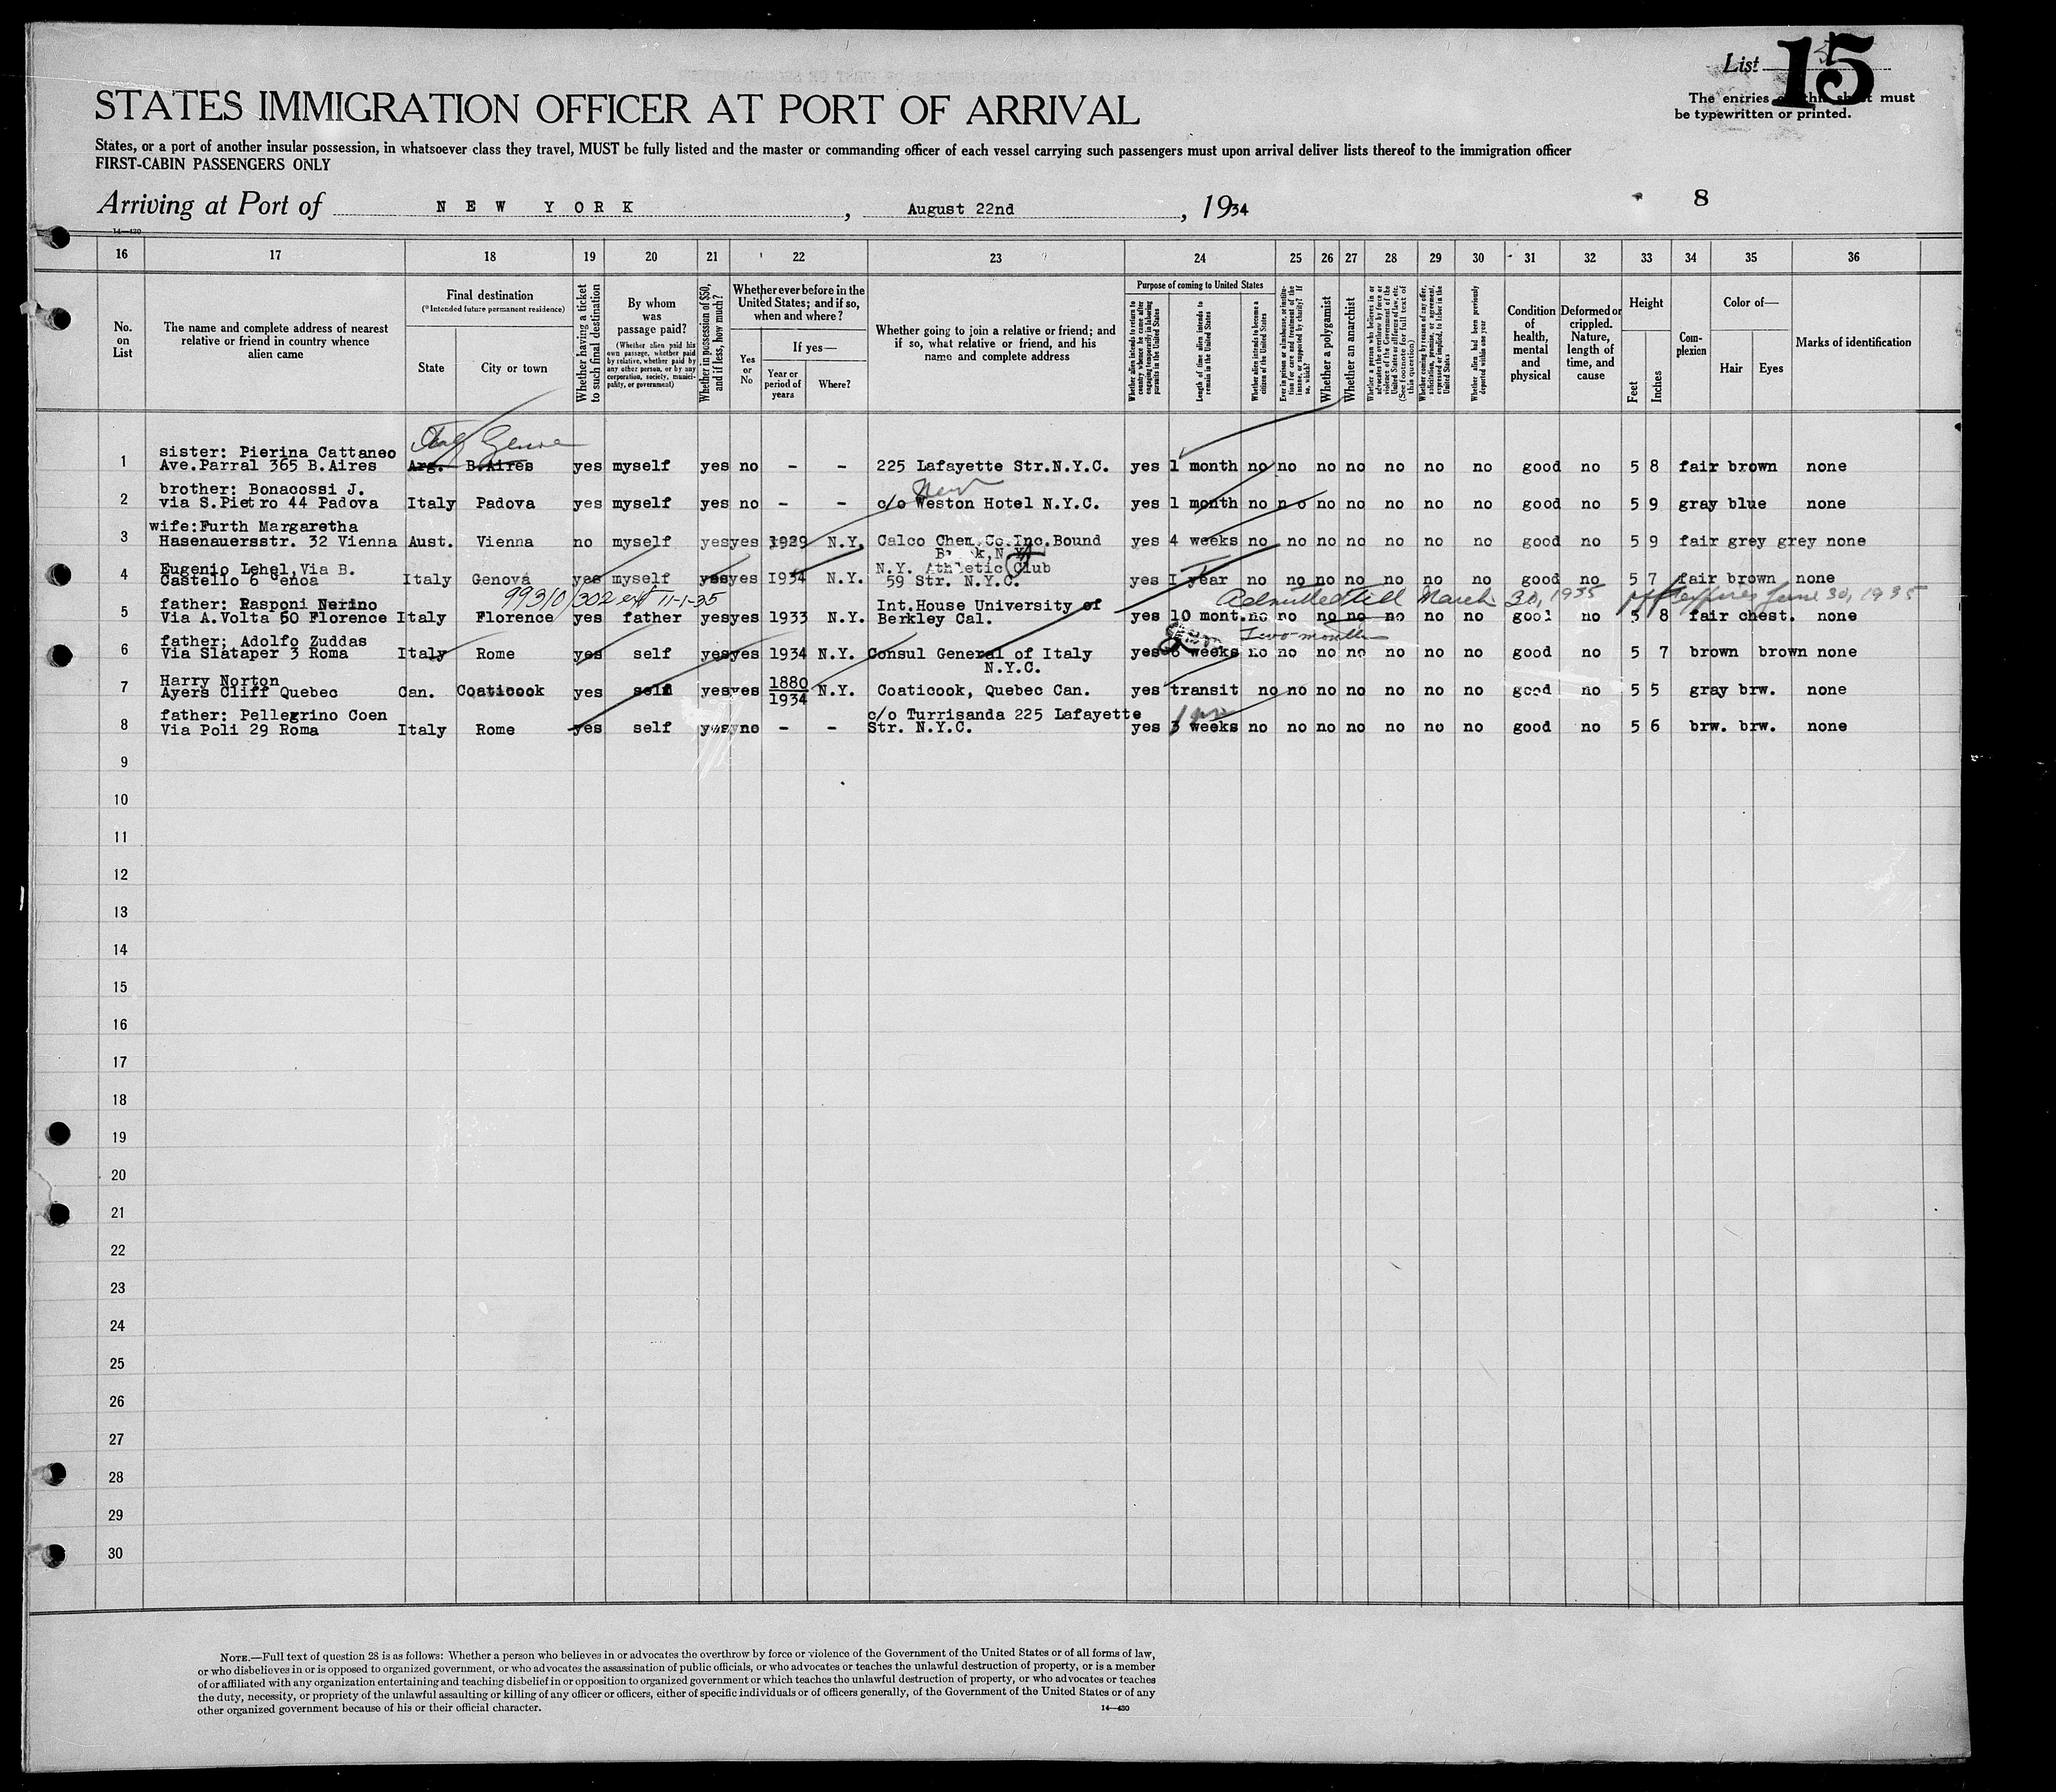 List 15
The entries on this sheet must
be typewritten or printed.
STATES IMMIGRATION OFFICER AT PORT OF ARRIVAL
States, or a port of another insular possession, in whatsoever class they travel, MUST be fully listed and the master or commanding officer of each vessel carrying such passengers must upon arrival deliver lists thereof to the immigration officer
FIRST-CABIN PASSENGERS ONLY
Arriving at Port of NEW YORK, August 22nd, 1934
8
14—430
16 17 18 19 20 21 22 23 24 25 26 27 28 29 30 31 32 33 34 35 36
No. on List
The name and complete address of nearest relative or friend in country whence alien came
Final destination
(*Intended future permanent residence)
State
City or town
Whether having a ticket to such final destination
By whom was passage paid?
(Whether alien paid his own passage, whether paid by relative, whether paid by any other person, or by any corporation, society, municipality, or government)
Whether in possession of $50, and if less, how much?
Whether ever before in the United States; and if so, when and where?
Yes or No
If yes—
Year or period of years
Where?
Whether going to join a relative or friend; and if so, what relative or friend, and his name and complete address
Purpose of coming to United States
Whether alien intends to return to country whence he came after engaging temporarily in laboring pursuits in the United States
Length of time alien intends to remain in the United States
Whether alien intends to become a citizen of the United States
Ever in prison or almshouse, or institution for care and treatment of the insane, or supported by charity? If so, which?
Whether a polygamist
Whether an anarchist
Whether a person who believes in or advocates the overthrow by force or violence of the Government of the United States or all forms of law, etc. (See footnote for full text of this question)
Whether coming by reason of any offer, solicitation, promise, or agreement, expressed or implied, to labor in the United States
Whether alien had been previously deported within one year
Condition of health, mental and physical
Deformed or crippled. Nature, length of time, and cause
Height
Feet
Inches
Complexion
Color of—
Hair
Eyes
Marks of identification
Genoa
1 sister: Pierina Cattaneo
Ave.Parral 365 B.Aires Arg. B.Aires yes myself yes no - - 225 Lafayette Str.N.Y.C. yes 1 month no no no no no no no good no 5 8 fair brown none
2 brother: Bonacossi J.
via S.Pietro 44 Padova Italy Padova yes myself yes no - - c/o Weston Hotel N.Y.C. yes 1 month no no no no no no no good no 5 9 gray blue none
3 wife:Furth Margaretha
Hasenauersstr. 32 Vienna Aust. Vienna no myself yes yes 1929 N.Y. Calco Chem.Co.Inc.Bound yes 4 weeks no no no no no no no good no 5 9 fair grey grey none
4 Eugenio Lehel,Via B.
Castello 6 Genoa Italy Genova yes myself yes yes 1934 N.Y. N.Y. Athletic Club
59 Str. N.Y.C. yes 1 year no no no no no no no good no 5 7 fair brown none
99310/302 ext 11-1-35
Admitted till March 30, 1935
expires June 30, 1935
5 father: Rasponi Nerino
Via A.Volta 50 Florence Italy Florence yes father yes yes 1933 N.Y. Int.House University of
Berkley Cal. yes 10 mont. no no no no no no no good no 5 8 fair chest. none
Two months
6 father: Adolfo Zuddas
Via Slataper 3 Roma Italy Rome yes self yes yes 1934 N.Y. Consul General of Italy
N.Y.C. yes 6 weeks no no no no no no no good no 5 7 brown brown none
7 Harry Norton
Ayers Cliff Quebec Can. Coaticook yes self yes yes 1880
1934 N.Y. Coaticook, Quebec Can. yes transit no no no no no no no good no 5 5 gray brw. none
8 father: Pellegrino Coen
Via Poli 29 Roma Italy Rome yes self yes no - - c/o Turrisanda 225 Lafayette
Str. N.Y.C. yes 3 weeks no no no no no no no good no 5 6 brw. brw. none
9
10
11
12
13
14
15
16
17
18
19
20
21
22
23
24
25
26
27
28
29
30
NOTE.—Full text of question 28 is as follows: Whether a person who believes in or advocates the overthrow by force or violence of the Government of the United States or of all forms of law,
or who disbelieves in or is opposed to organized government, or who advocates the assassination of public officials, or who advocates or teaches the unlawful destruction of property, or is a member
of or affiliated with any organization entertaining and teaching disbelief in or opposition to organized government or which teaches the unlawful destruction of property, or who advocates or teaches
the duty, necessity, or propriety of the unlawful assaulting or killing of any officer or officers, either of specific individuals or of officers generally, of the Government of the United States or of any
other organized government because of his or their official character.
14—430